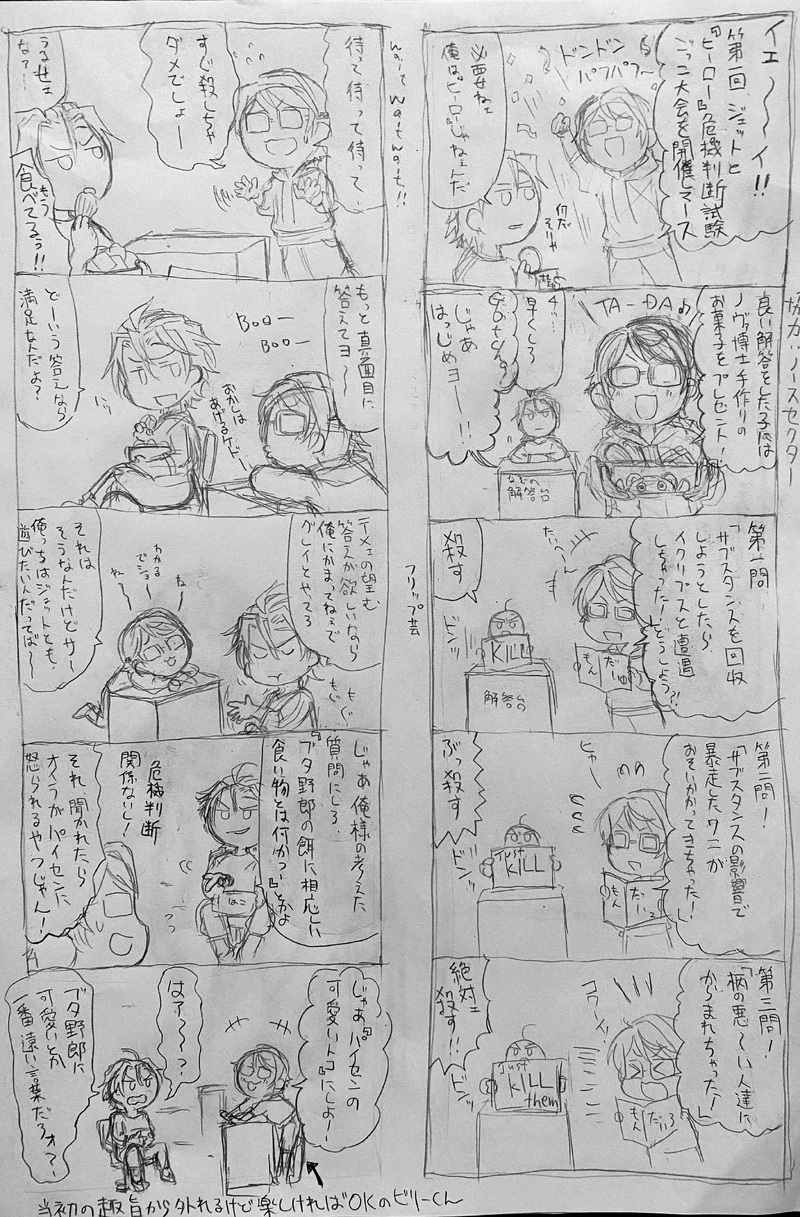 イェ〜〜イ!!
第一回、ジェットと
『ヒーロー』危機判断試験
ごっこ大会を開催しマース
ドンドン
パフパフ〜
必要ねェ
俺は『ヒーロー』じゃねェんだ
何だ
そりゃ
協力:ノースセクター
良い解答をした子には
ノヴァ博士手作りの
お菓子をプレゼント!
TA-DA♪
チッ…
早くしろ
じゃあ
はっじめヨー!!
なぞの
解答台
第一問
「サブスタンスを回収
しようとしたら
イクリプスと遭遇
しちゃった!どうしよう?!
たいへ〜ん
だいいち
もん
殺す
ドンッ
KILL
解答台
第二問!
「サブスタンスの影響で
暴走したワニが
おそいかかってきちゃった!」
ヒャー
だい2
もん
ぶっ殺す
ドンッ
just
KILL
第三問!
「柄の悪〜い人達に
からまれちゃった!」
コワーイッ
だい3
もん
絶対ェ
殺す!!
ドンッ
just
KILL
them
フリップ芸
wait wait wait!!
待って待って待って、
すぐ殺しちゃ
ダメでしょー
うるせェ
なァー
もう
食べてるっ!!
もっと真面目に
答えてヨ〜
Boo-
Boo-
おかしは
あげるケドー
どーいう答えなら
満足なんだよ?
テメェの望む
答えが欲しいなら
俺にかまってねぇで
グレイとやってろ
もぐ
もぐ
ね〜
わかる
でショ
それは
そうなんだけどサー
俺っちはジェットとも
遊びたいんだってば〜
じゃあ俺様の考えた
質問にしろ
『ブタ野郎の餌に相応しい
食い物とは何かっ!』とかよ
はこ
危機判断
関係ないし!
それ、聞かれたら
オイラがパイセンに
怒られるやつじゃん!
じゃあ『パイセンの
可愛いトコ』にしよー!
はァ〜〜?
ブタ野郎に
可愛いとか
一番遠い言葉だろォ?
当初の趣旨から外れるけど楽しければOKのビリーくん